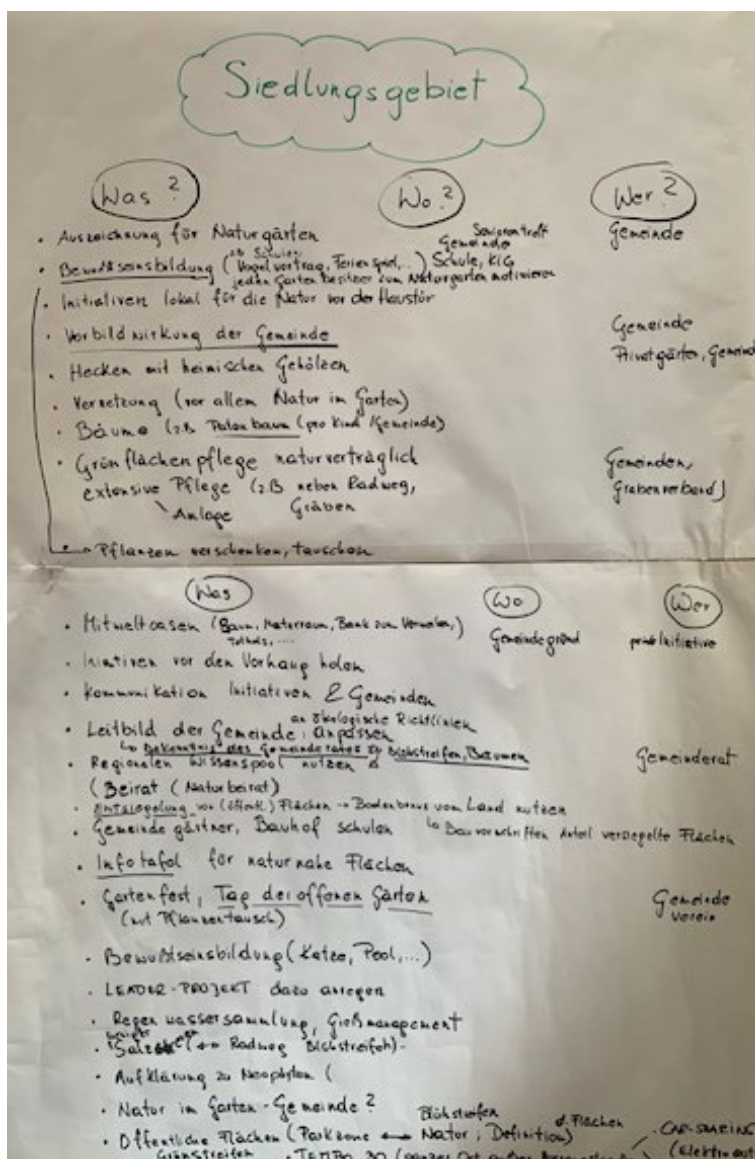 Siedlungsgebiet
Was? Wo? Wer?
· Auszeichnung für Naturgärten Gemeinde
Seniorentreff
Gemeinde
zB Schulen
· Bewußtseinsbildung (Vogelvortrag, Ferienspiel, ...) Schule, KiG
jeden Gartenbesitzer zum Naturgarten motivieren
· Initiativen lokal für die Natur vor der Haustür
· Vorbildwirkung der Gemeinde Gemeinde
Privatgärten, Gemeind
· Hecken mit heimischen Gehölzen
· Vernetzung (vor allem Natur im Garten)
· Bäume (z.B Patenbaum (pro Kind /Gemeinde)
· Grünflächenpflege naturverträglich Gemeinden,
extensive Pflege (z.B neben Radweg, Grabenverband)
Anlage Gräben
Pflanzen verschenken, tauschen
Was Wo Wer
· Mitweltoasen (Baum, Naturraum, Bank zum Verweilen,) Gemeindegrund private Initiative
Totholz, ....
· Iniativen vor den Vorhang holen
· Kommunikation Initiativen & Gemeinden
an ökologische Richtlinien
· Leitbild der Gemeinde: Anpassen
↳ Bekenntnis des Gemeinderates zu Blühstreifen, Bäumen
· Regionalen Wissenspool nutzen Gemeinderat
(Beirat (Naturbeirat)
· Entsiegelung von (öffentl.) Flächen → Bodenbonus vom Land nutzen
· Gemeindegärtner, Bauhof schulen ↳ Bauvorschriften Anteil versiegelte Flächen
· Infotafel für naturnahe Flächen
· Gartenfest, Tag der offenen Gärten Gemeinde
(mit Pflanzentausch) Verein
· Bewußtseinsbildung (Katze, Pool, ...)
· LEADER-PROJEKT dazu anregen
· Regenwassersammlung, Gießmanagement
weniger
· Salz (↔ Radweg Blühstreifen) -
· Aufklärung zu Neophyten (
· Natur im Garten-Gemeinde?
Blühstreifen
d. Flächen
· Öffentliche Flächen (Parkzone ↔ Natur; Definition) · CAR-SHARING
Grünstreifen · TEMPO 30 (ganzer Ort außer (Elektroaut